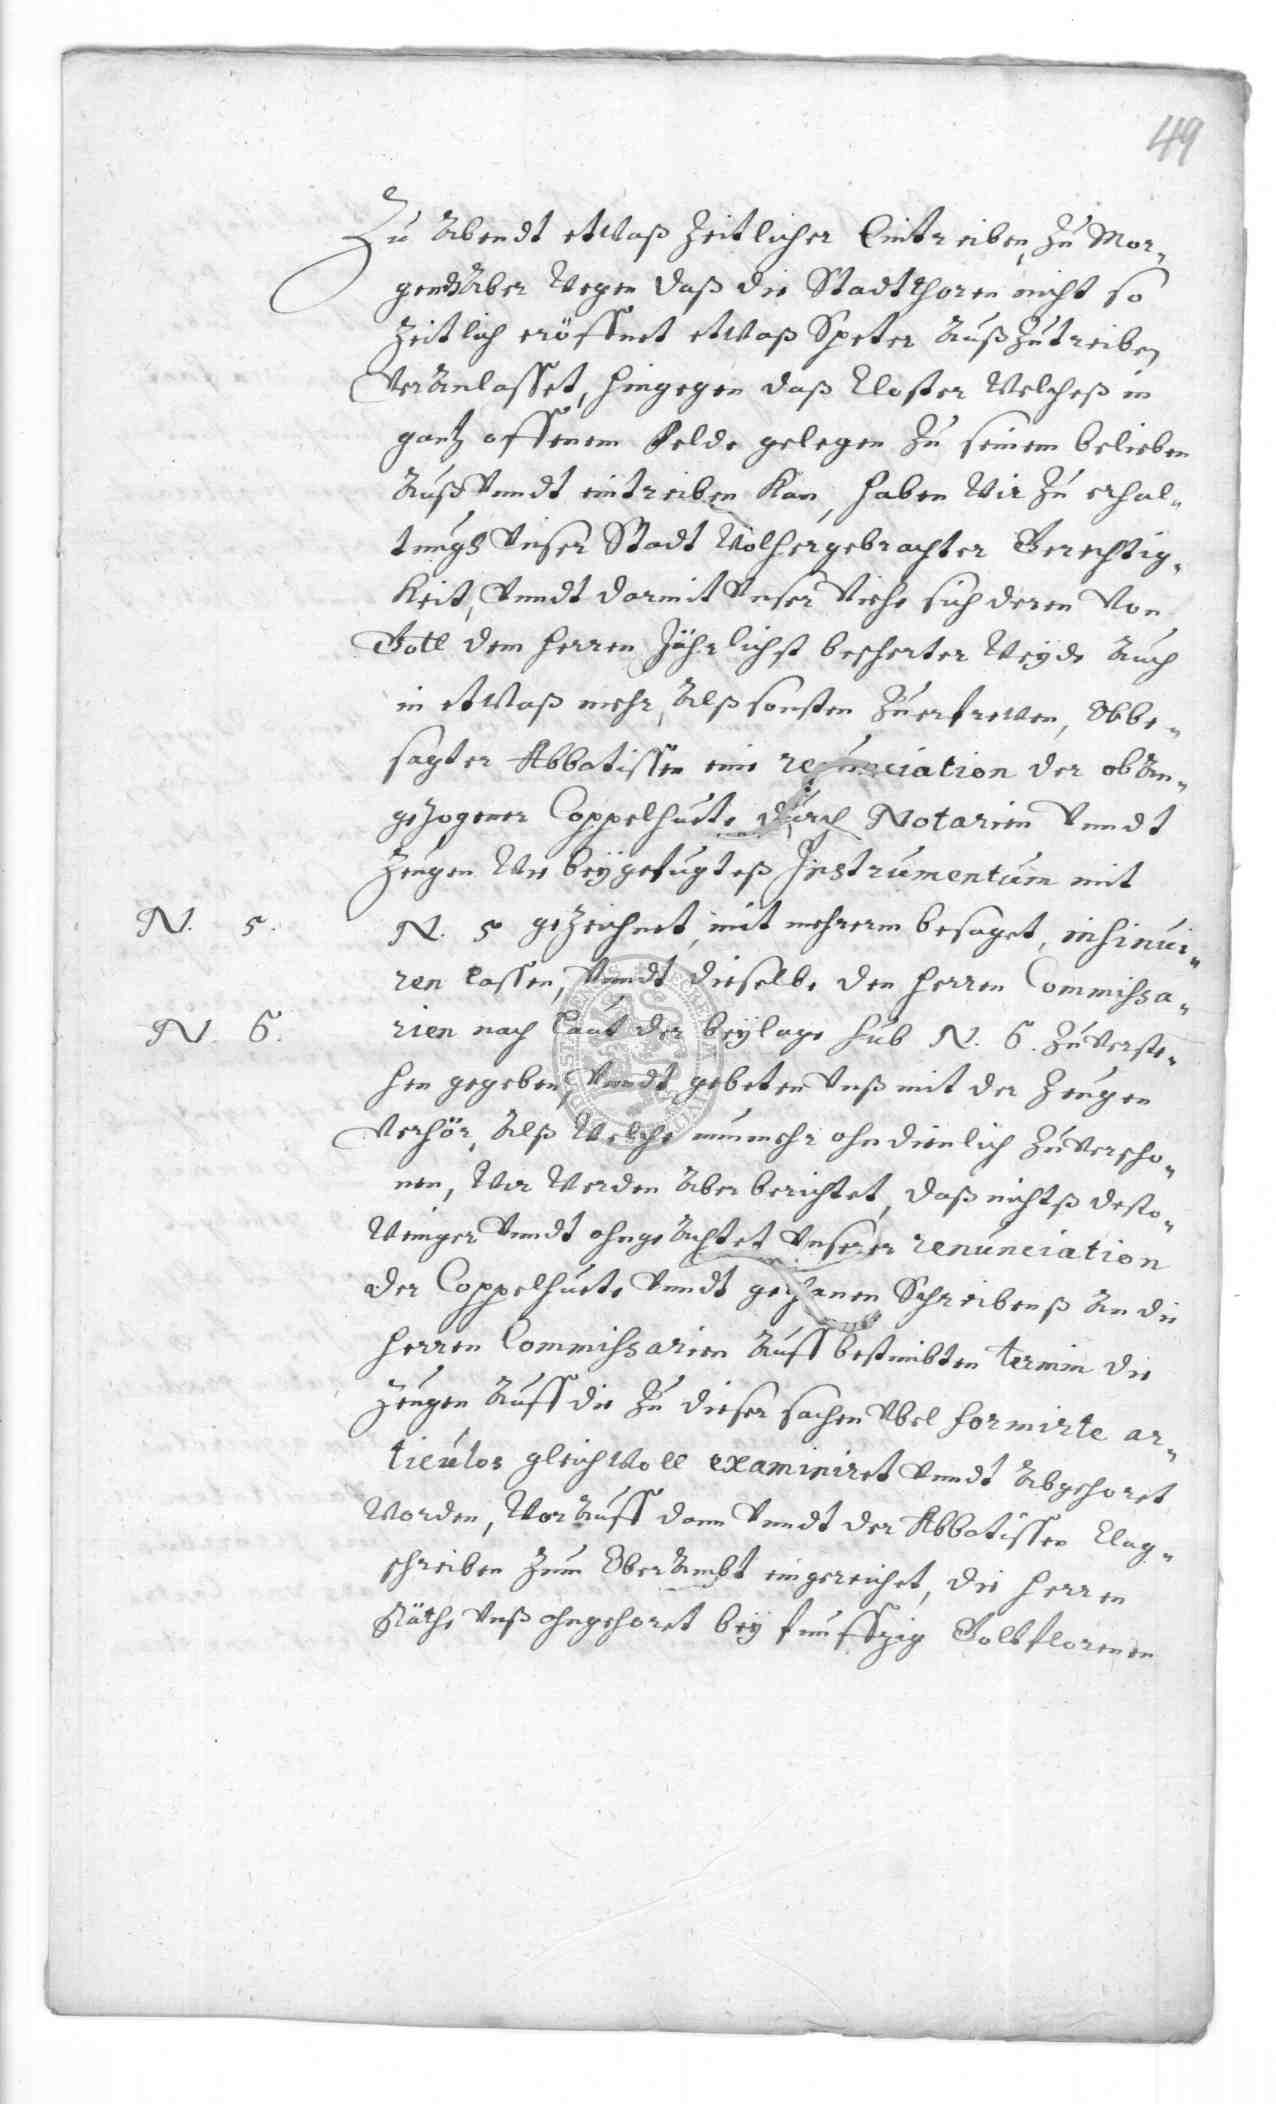 49
Zu Abendt etwaß Zeitlicher Eintreiben, Zu Mor„
gendß Aber wegen daß die Stadtthoren nicht so
Zeitlich eröffnet etwaß Speter Außzutreiben
Veranlasset, hingegen daß Closter welcheß in
gantz offenem Felde gelegen Zu seinem belieben
Auß Vnndt eintreiben Kan, haben wir Zu erhal„
tungh Vnser Stadt wolhergebrachter Gerechtig„
keit, Vnndt darmit Vnser Viehe sich deren Von
Gott dem herren Jährlichst bescherter Weyde Auch
in etwaß mehr, Alß sonsten Zu erfrewen, Obbe„
sagter Abbatissen eine renunciation der obAn„
gezogener Coppelhuete durch Notarien Vnndt
Zeugen wie beygefugteß Instrumentum mit
N. 5.
N. 5 gezeichnet, mit mehrerm besaget, insinui„
ren lassen, Vnndt dieselbe den herren Commissa„
N. 6.
rien nach laut der beylage sub N. 6. Zuverste„
hen gegeben, Vnndt gebeten Vnß mit der Zeugen
Verhör, Alß welche nunmehr ohndienlich Zuverscho„
nen, wir werden Aber berichtet, daß nichtß desto„
weiniger Vnndt ohngeAchtet Vnserer renunciation
der Coppelhuete Vnndt gethanen Schreibenß An die
herren Commissarien Auff bestimbten termin die
Zeugen Auff die Zu dieser sachen Vbel formirte ar„
ticulos gleichwoll examiniret Vnndt Abgehoret
worden, worAuff dann Vnndt der Abbatissen Clag„
schreiben Zum OberAmbt eingereichet, die herren
Räthe Vnß ohngehoret bey funffzig Goltflorenen